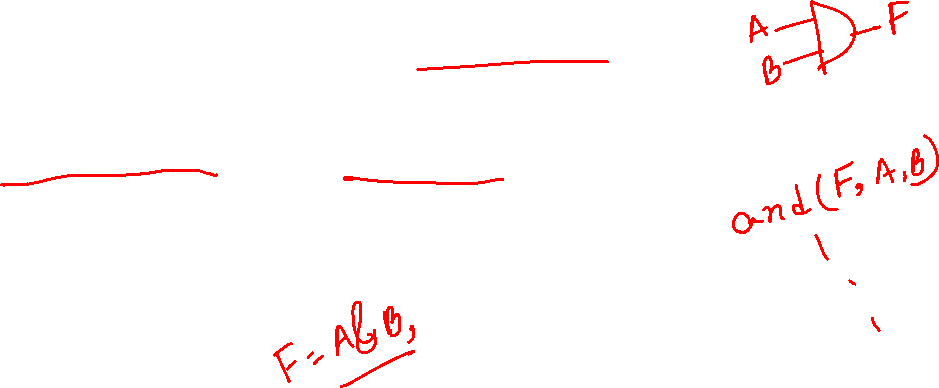 A
F
B
and(F, A, B)
F = A & B,